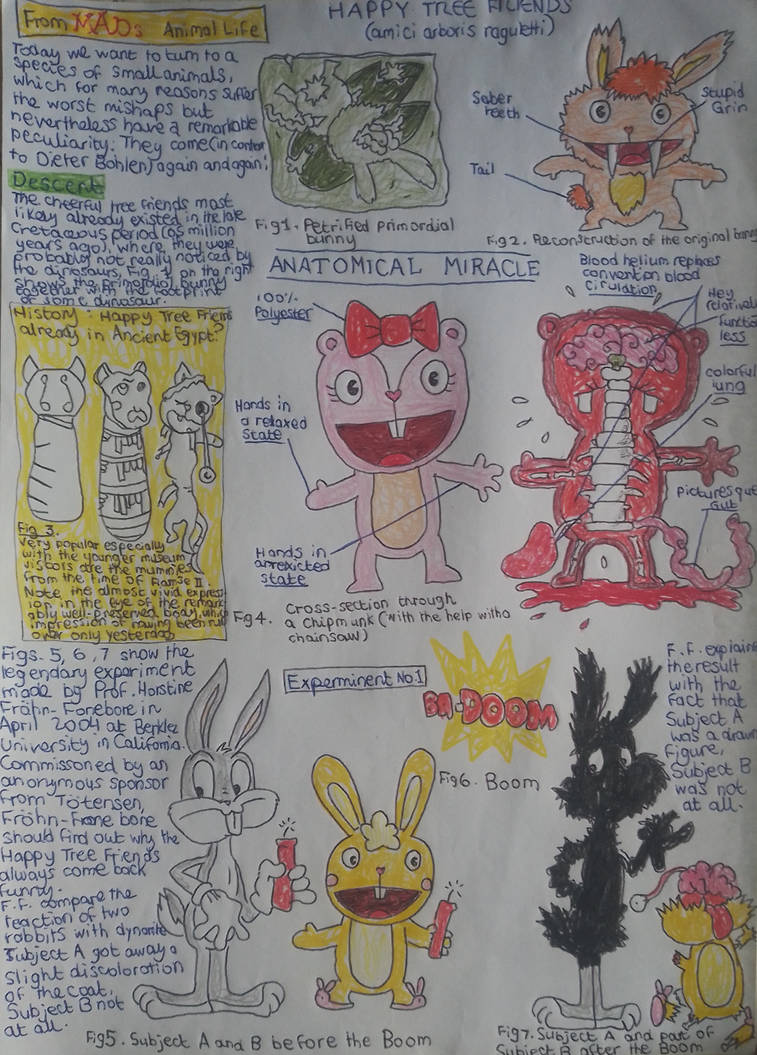 From MADs Animal Life
HAPPY TREE FRIENDS
(amici arboris raguletti)
Today we want to turn to a
species of small animals,
which for many reasons suffer
the worst mishaps but
nevertheless have a remarkable
peculiarity: They come (in contor
to Dieter Bohlen) again and again!
Descent
The cheerful tree friends most
likely already existed in the late
Cretaceous period (65 million
years ago), where they were
probably not really noticed by
the dinosaurs, Fig. 1 on the right
shows the primordial bunny
together with the footprint
of some dinosaur.
Fig 1. Petrified primordial
bunny
Saber
teeth
Stupid
Grin
Tail
Fig 2. Reconstruction of the original bunny
ANATOMICAL MIRACLE
History: Happy Tree Friends
already in Ancient Egypt?
Fig 3.
Very popular especially
with the younger museum
visitors are the mummies
from the time of Ramse II
Note the almost vivid express
ion in the eye of the remark
ably well-preserved body, which
impression of having been run
over only yesterday
100%
Polyester
Hands in
a relaxed
state
Hands in
an excited
state
Blood helium replaces
convention blood
Cirulation
Hey
relatively
functio
less
colorful
lung
picturesque
Gut
Fig 4. Cross-section through
a Chipmunk (with the help with a
chainsaw)
Figs. 5, 6, 7 show the
legendary experiment
made by Prof. Horstine
Fröhn-Fonebone in
April 2004 at Berklez
University in California.
Commissoned by an
anonymous sponsor
from Tötensen,
Fröhn-Fone bone
should find out why the
Happy Tree Friends
always come back
funny.
F.F. compare the
reaction of two
rabbits with dynamite
Subject A got away a
slight discoloration
of the coat,
Subject B not
at all.
Experminent No.1
BA-DOOM
Fig 6. Boom
F.F. explains
the result
with the
fact that
Subject A
was a drawn
Figure,
Subject B
was not
at all.
Fig 5. Subject A and B before the Boom
Fig 7. Subject A and part of
Subject B after the Boom